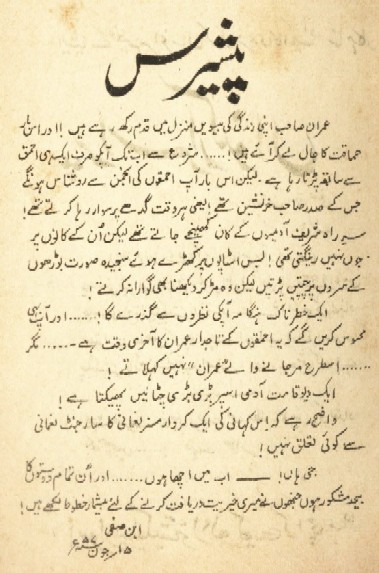 پیشرس
عمران صاحب اپنی زندگی کی بیسویں منزل میں قدم رکھ رہے ہیں! اور اس بار
حماقت کا جال لے کر آئے ہیں!...... شروع سے اب تک آپکو صرف ایک ہی احمق
سے سابقہ پڑتا رہا ہے ۔ لیکن اس بار آپ احمقوں کی انجمن سے روشناس ہونگے
جس کے صدر صاحب خرنشین تھے! یعنی ہر وقت گدھے پر سوار رہا کرتے تھے!
سر راہ شریف آدمیوں کے کان کھینچے جاتے تھے لیکن اُن کے کانوں پر
جوں نہیں رینگتی تھی! بس اسٹاپوں پر کھڑے ہوئے سنجیدہ صورت بوڑھوں
کے سروں پر چپتیں پڑتیں لیکن وہ مڑ کر دیکھنا بھی گوارا نہ کرتے!
ایک خطرناک ہنگامہ آپکی نظروں سے گذرے گا!...... اور آپ یہی
محسوس کریں گے کہ یہ احمقوں کے تاجدار عمران کا آخری وقت ہے ..... مگر
....... اسطرح مر جانے والے "عمران" نہیں کہلاتے!
ایک دیو قامت آدمی اسپر بڑی بڑی چٹانیں پھینکتا ہے!
واضح رہے کہ اس کہانی کے ایک کردار مسٹر نعمانی کا سارجنٹ نعمانی
سے کوئی تعلق نہیں!
جی ہاں! ــــ اب میں اچھا ہوں....... اور اُن تمام دوستوں کا
بیحد مشکور ہوں جنھوں نے میری خیریت دریافت کرنے کے لئے بیشمار خطوط لکھے ہیں!
ابن صفی
۱۵ جون ۵۷ء